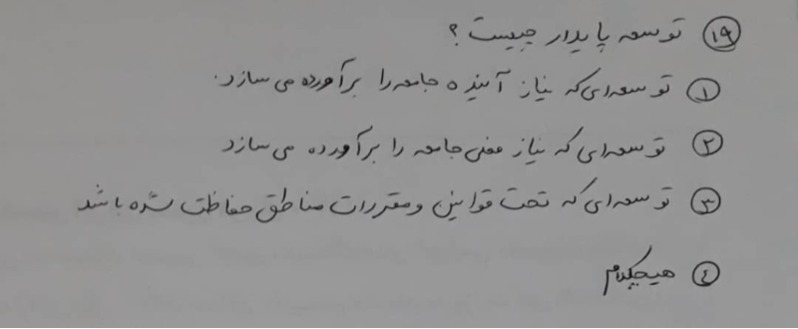 ۱۹ توسعه پایدار چیست ؟
۱ توسعه‌ای که نیاز آینده جامعه را برآورده می سازد.
۲ توسعه‌ای که نیاز فعلی جامعه را برآورده می سازد
۳ توسعه‌ای که تحت قوانین و مقررات مناطق حفاظت شده باشد
۴ هیچکدام